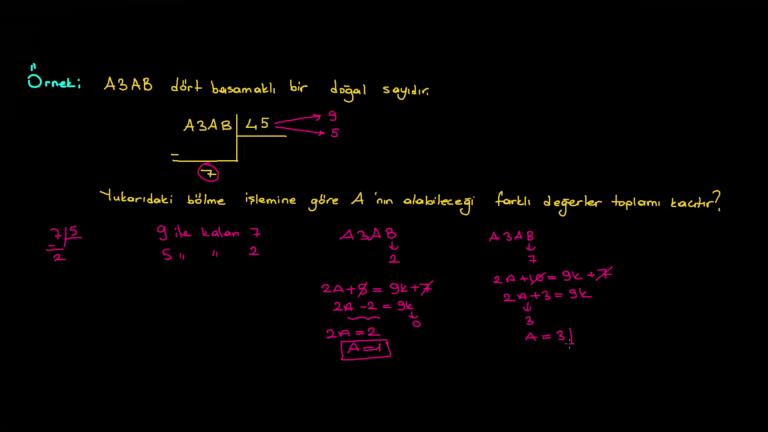 Örnek: A3AB dört basamaklı bir doğal sayıdır.
A3AB 45 9
5
7
Yukarıdaki bölme işlemine göre A'nın alabileceği farklı değerler toplamı kaçtır?
7 5 9 ile kalan 7 A3AB A3AB
2 5 " " 2 2 7
2A+5=9k+7 2A+10=9k+7
2A-2=9k 2A+3=9k
0 3
2A=2 A=3
A=1